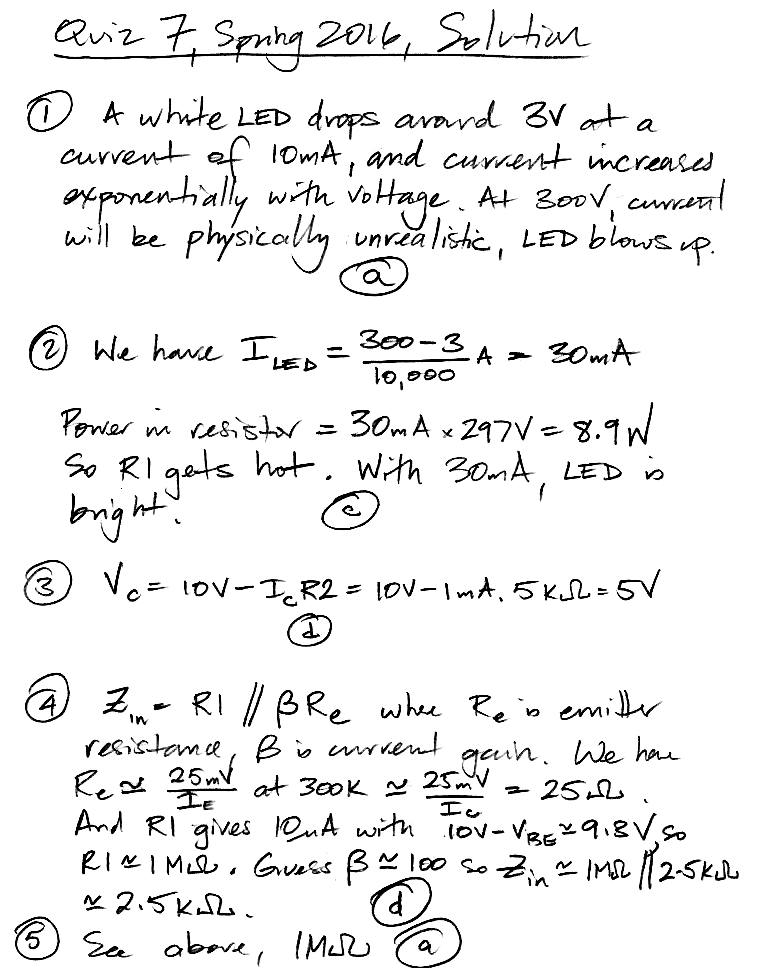 Quiz 7, Spring 2016, Solution
① A white LED drops around 3V at a
current of 10mA, and current increases
exponentially with voltage. At 300V, current
will be physically unrealistic, LED blows up.
ⓐ
② We have I_LED = (300-3)/10,000 A = 30mA
Power in resistor = 30mA × 297V = 8.9W
So R1 gets hot. With 30mA, LED is
bright.
ⓒ
③ V_c = 10V - I_c R2 = 10V - 1mA. 5KΩ = 5V
ⓓ
④ Z_in = R1 // βRe where Re is emitter
resistance, β is current gain. We have
Re ≃ 25mV/I_E at 300K ≃ 25mV/I_c = 25Ω.
And R1 gives 10uA with 10V-V_BE ≃ 9.8V, so
R1 ≃ 1MΩ. Guess β ≃ 100 so Z_in ≃ 1MΩ // 2.5KΩ
≃ 2.5KΩ.
ⓓ
⑤ See above, 1MΩ ⓐ